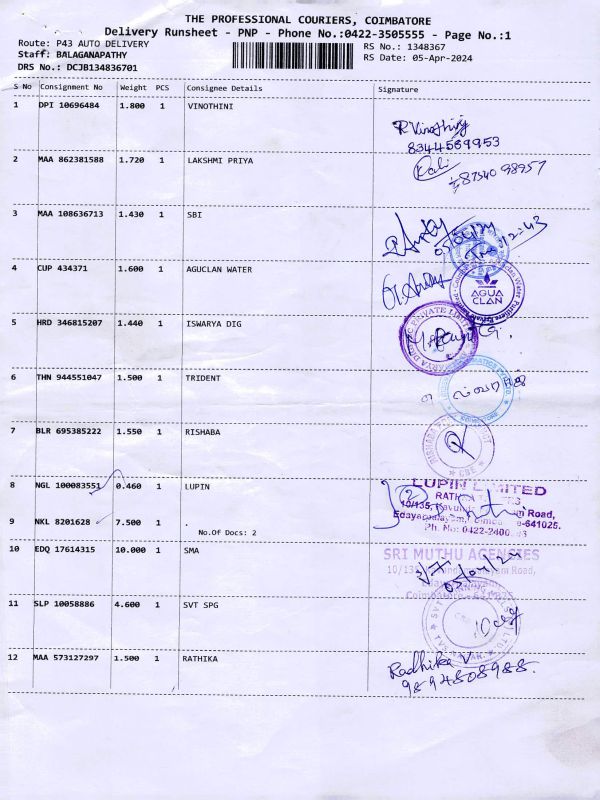 THE PROFESSIONAL COURIERS, COIMBATORE
Delivery Runsheet - PNP - Phone No.:0422-3505555 - Page No.:1
Route: P43 AUTO DELIVERY
RS No.: 1348367
Staff: BALAGANAPATHY
RS Date: 05-Apr-2024
DRS No.: DCJB134836701
S No Consignment No Weight PCS Consignee Details Signature
1 DPI 10696484 1.800 1 VINOTHINI
R Vinothini
8344569953
2 MAA 862381588 1.720 1 LAKSHMI PRIYA
8754098957
3 MAA 108636713 1.430 1 SBI
05/04/24
12:43
4 CUP 434371 1.600 1 AGUCLAN WATER
AGUA
CLAN
5 HRD 346815207 1.440 1 ISWARYA DIG
PRIVATE LIMITED
6 THN 944551047 1.500 1 TRIDENT
COIMBATORE
7 BLR 695385222 1.550 1 RISHABA
8 NGL 100083551 0.460 1 LUPIN
LUPIN LIMITED
10/135, Road,
Edayarpalayam, -641025.
Ph. No: 0422-2400
9 NKL 8201628 7.500 1 .
No.Of Docs: 2
10 EDQ 17614315 10.000 1 SMA
SRI MUTHU AGENCIES
10/135, Road,
05/04/24
11 SLP 10058886 4.600 1 SVT SPG
12 MAA 573127297 1.500 1 RATHIKA
Radhika V
9894808988